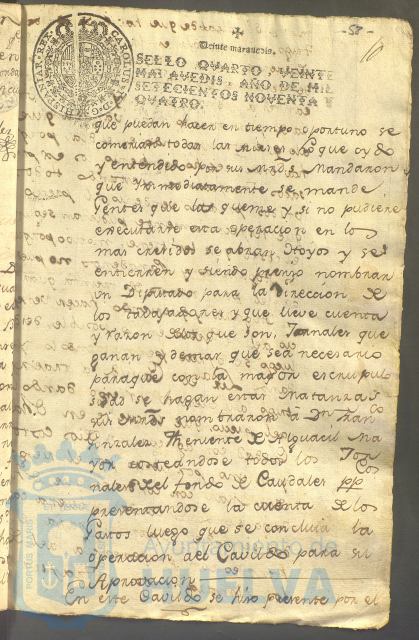 -58-
10
CAROLUS IV D. G. HISPANIAR. REX
Veinte maravedis.
SELLO QUARTO, VEINTE
MARAVEDIS, AÑO DE MIL
SETECIENTOS NOVENTA Y
QUATRO.
que puedan hacer en tiempo oportuno se
todas las que oydo
y entendido por sus mrds. Mandaron
que Ynmediatamente se mande
Gentes que las queme y si no pudiere
executarse esta operacion en los
mas crecidos se abran Hoyos y se
entierren y siendo preciso nombrar
un Diputado para la Direccion de
los trabajadores y que lleve cuenta
y razon de los que son, Jornales que
ganan y demas que sea necesario
paraque con la mayor escrupulo
sidad se hagan estas Matanzas
sus mrds nombraron a Dn. Fran.co
Gonzalez Theniente de Alguacil Ma
yor costeandose todos los Jor
nales del fondo de Caudales pp.cos
presentandose la cuenta de los
Gastos luego que se concluia la
operacion ael Cavildo para su
Aprovacion
En este Cavildo se hizo presente por el
PORTUS MARIS
Ayuntamiento de
HUELVA